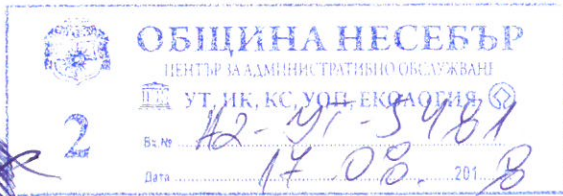 ОБЩИНА НЕСЕБЪР
ЦЕНТЪР ЗА АДМИНИСТРАТИВНО ОБСЛУЖВАНЕ
УТ, ИК, КС, УОП, ЕКОЛОГИЯ
2
Вх. №
Дата 17.08. 2018